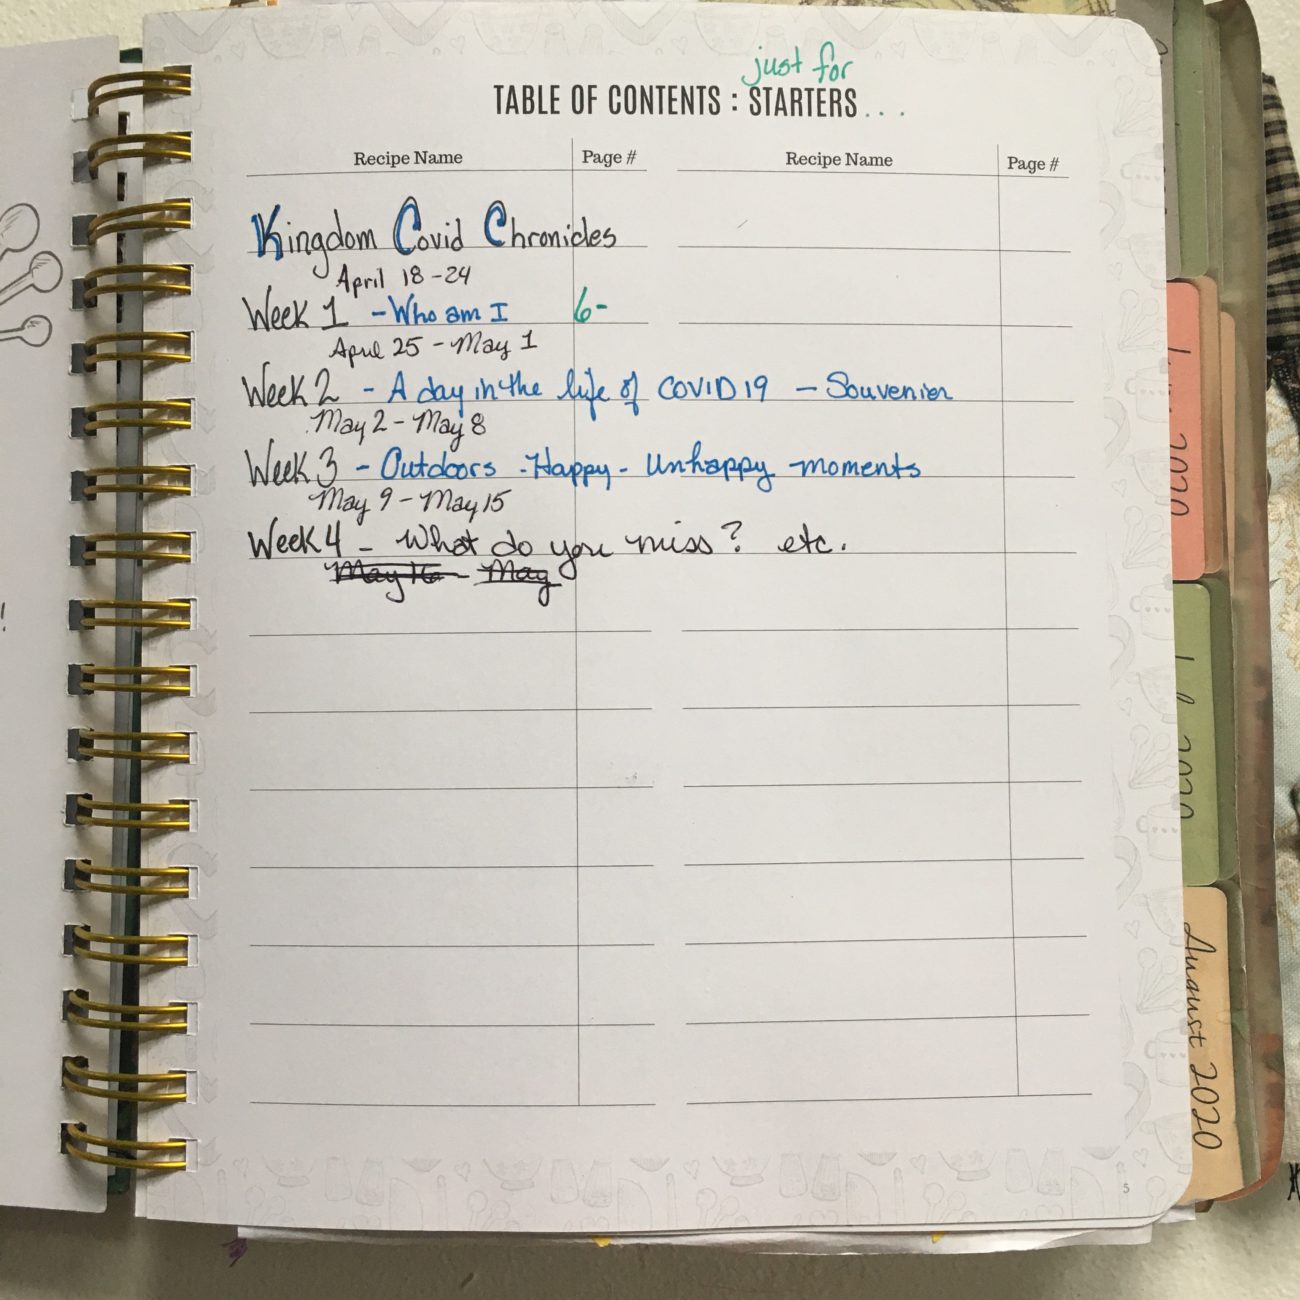 just for
TABLE OF CONTENTS : STARTERS . . .
Recipe Name Page # Recipe Name Page #
Kingdom Covid Chronicles
April 18 - 24
Week 1 - Who am I 6-
April 25 - May 1
Week 2 - A day in the life of COVID 19 - Souvenier
May 2 - May 8
Week 3 - Outdoors - Happy - Unhappy moments
May 9 - May 15
Week 4 - What do you miss? etc.
May 16 - May
!
2020
2020
August 2020
5